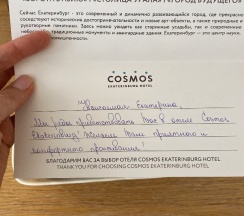 Сейчас Екатеринбург - это современный и динамично развивающийся город, где прекрасно
соседствуют исторические достопримечательности и новые арт-объекты, а также природные и
рукотворные памятники. Здесь можно увидеть как старинные усадьбы, так и современные
небоскребы, традиционные монументы и авангардные здания. Екатеринбург — это центр науки,
промышленности.
COSMOS
EKATERINBURG HOTEL
Уважаемая Екатерина,
Мы рады приветствовать Вас в отеле Cosmos
Ekaterinburg! Желаем Вам приятного и
комфортного проживания!
БЛАГОДАРИМ ВАС ЗА ВЫБОР ОТЕЛЯ COSMOS EKATERINBURG HOTEL
THANK YOU FOR CHOOSING COSMOS EKATERINBURG HOTEL